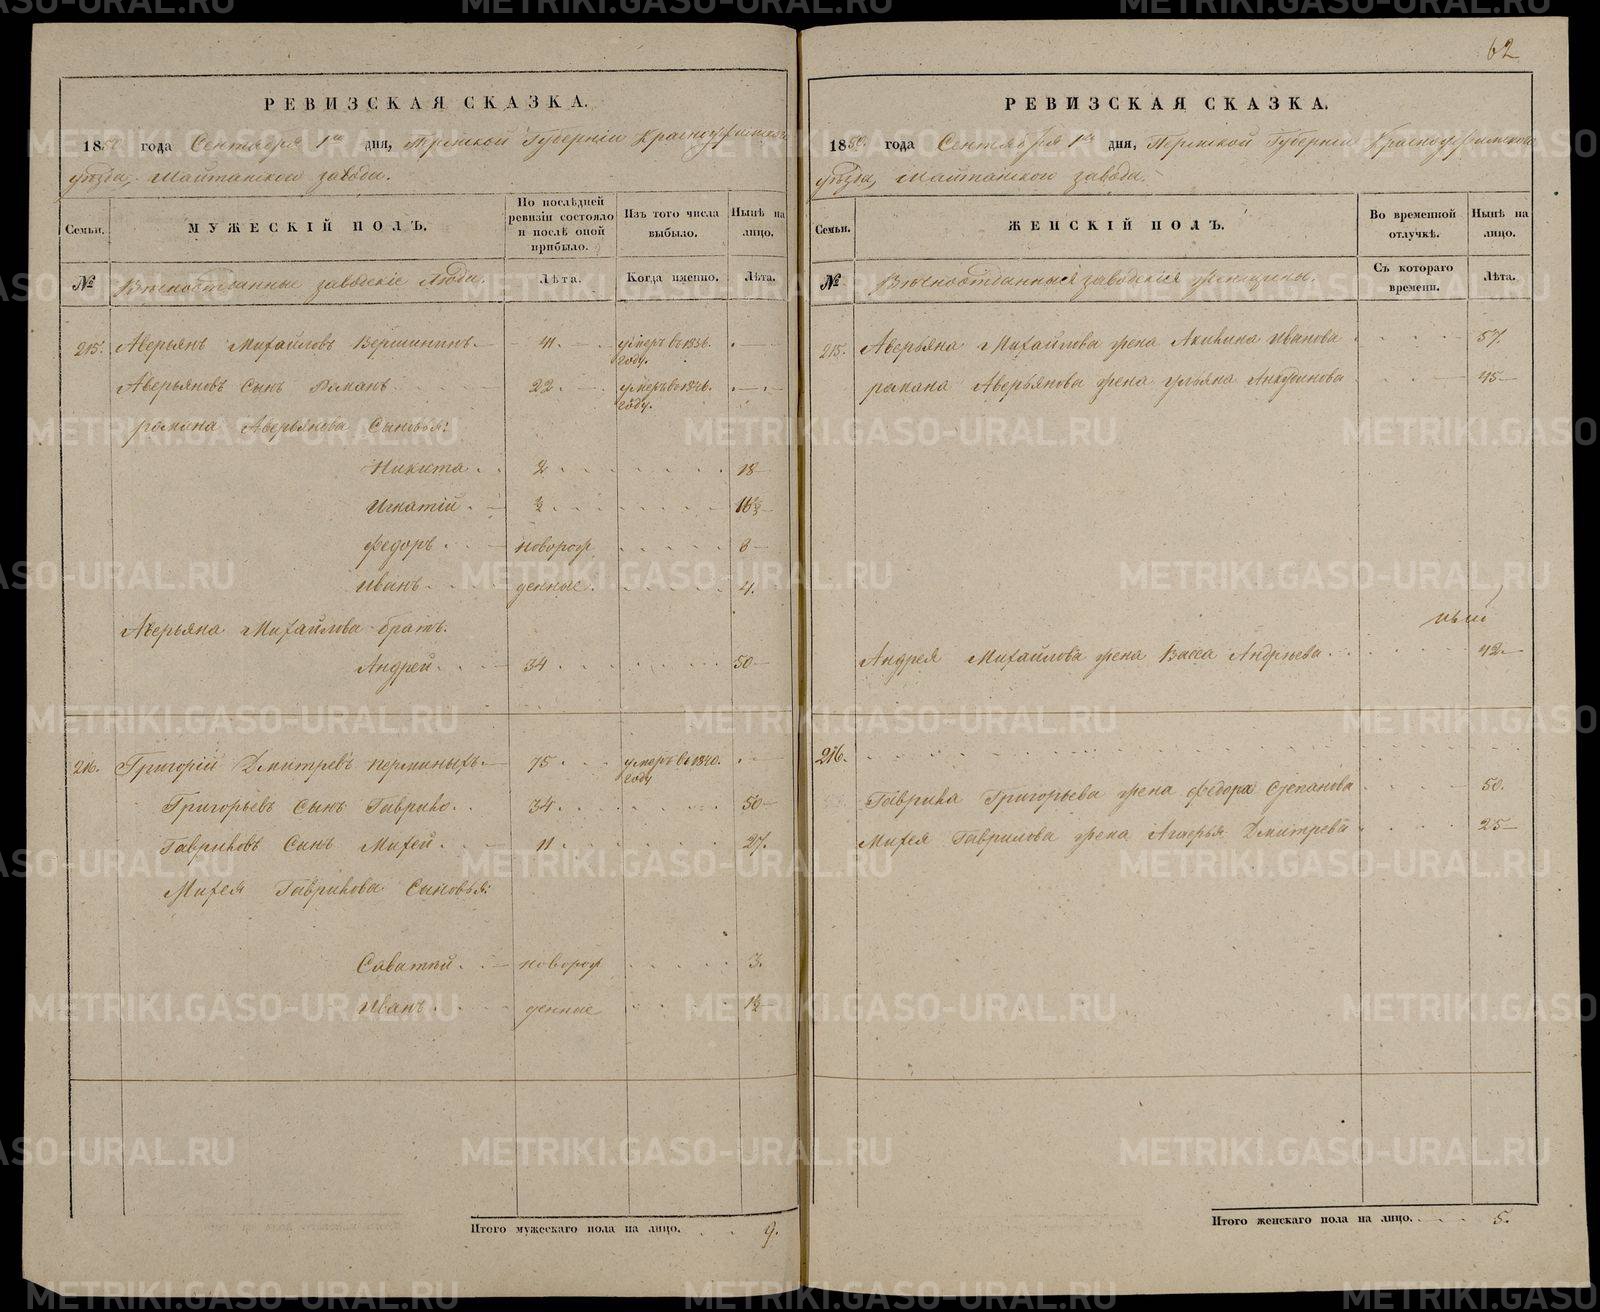 РЕВИЗСКАЯ СКАЗКА.
1850. года Сентября 1го дня, Пермской Губерніи Красноуфимскаго
уѣзда, завода.
Семьи. МУЖЕСКІЙ ПОЛЪ. По послѣдней ревизіи состояло и послѣ оной прибыло. Изъ того числа выбыло. Нынѣ на лицо.
№ Вѣчноотданные заводскіе люди. Лѣта. Когда именно. Лѣта.
215. Аверьянъ Михайловъ Вершининъ. 41. умеръ въ 1836. году.
Аверьяновъ Сынъ Романъ 22. умеръ въ 1846. году.
романа Аверьянова Сыновья:
Никита 2 18
Игнатій ½ 16½
Федоръ новорож 8
Иванъ денные. 4.
Аверьяна Михайлова братъ.
Андрей 34 50
216. Григорій Дмитревъ 75 умеръ въ 1840. году
Григорьевъ Сынъ Гаврило. 34. 50
Гавриловъ Сынъ Михей. 11. 27.
Михея Гаврилова Сыновья:
Саватей. новорож 3.
Иванъ денные 1½
Итого мужескаго пола на лицо. 9.
62
РЕВИЗСКАЯ СКАЗКА.
1850. года Сентября 1го дня, Пермской Губерніи Красноуфимскаго
уѣзда, завода.
Семьи. ЖЕНСКІЙ ПОЛЪ. Во временной отлучкѣ. Нынѣ на лицо.
№ Вѣчноотданныя заводскія женщины. Съ котораго времени. Лѣта.
215. Аверьяна Михайлова жена Акилина Иванова 57.
романа Аверьянова жена Ульяна Анкудинова 45
Андрея Михайлова жена Васса Андреева 42
216.
Гаврила Григорьева жена Федора Степанова 50.
Михея Гаврилова жена Агафья Дмитрева 25
Итого женскаго пола на лицо. 5.